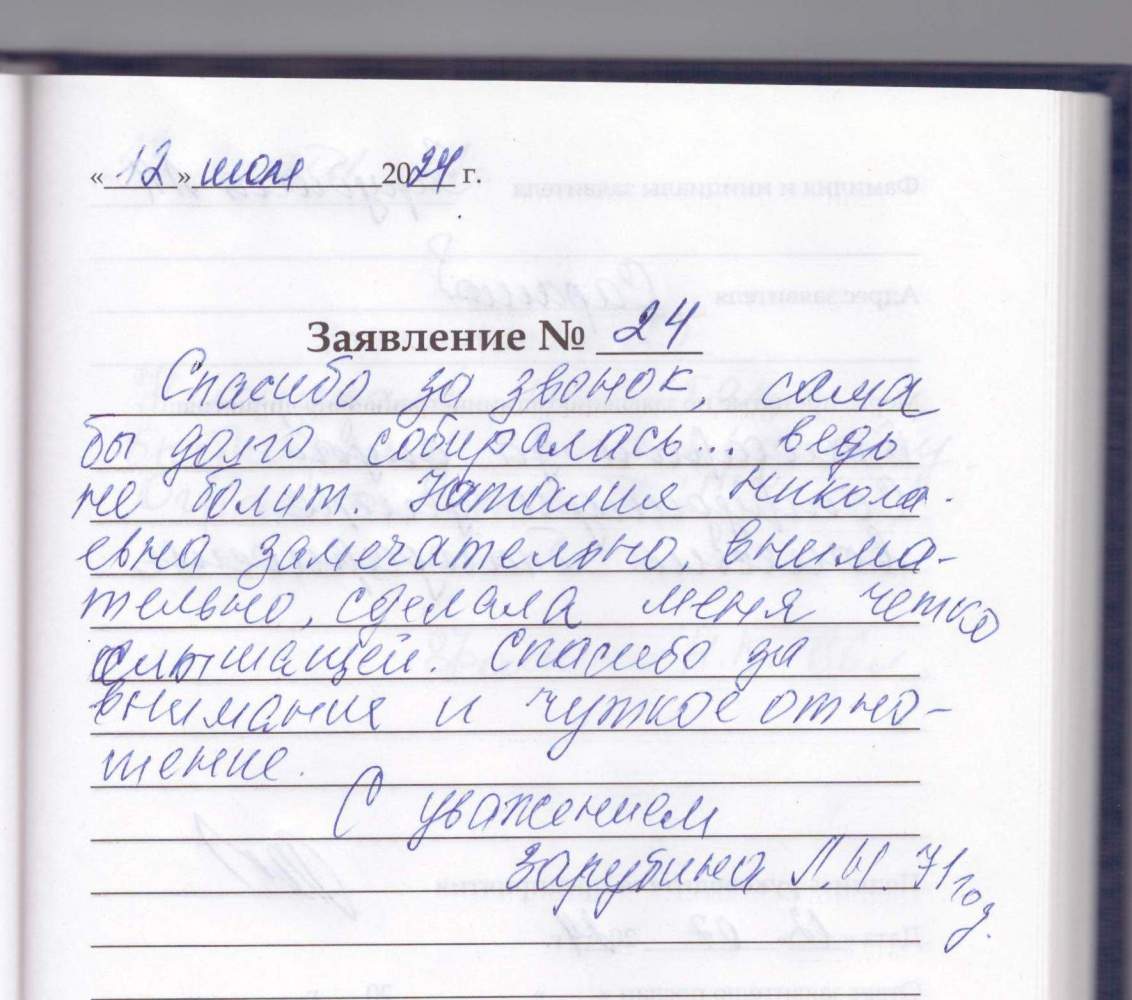 «12» июля 2024 г.
Заявление № 24
Спасибо за звонок, сама
бы долго собиралась... ведь
не болит. Наталия Никола-
евна замечательно, внима-
тельно, сделала меня четко
слышащей. Спасибо за
внимание и чуткое отно-
шение.
С уважением
Зарубина Л Н 71 год.